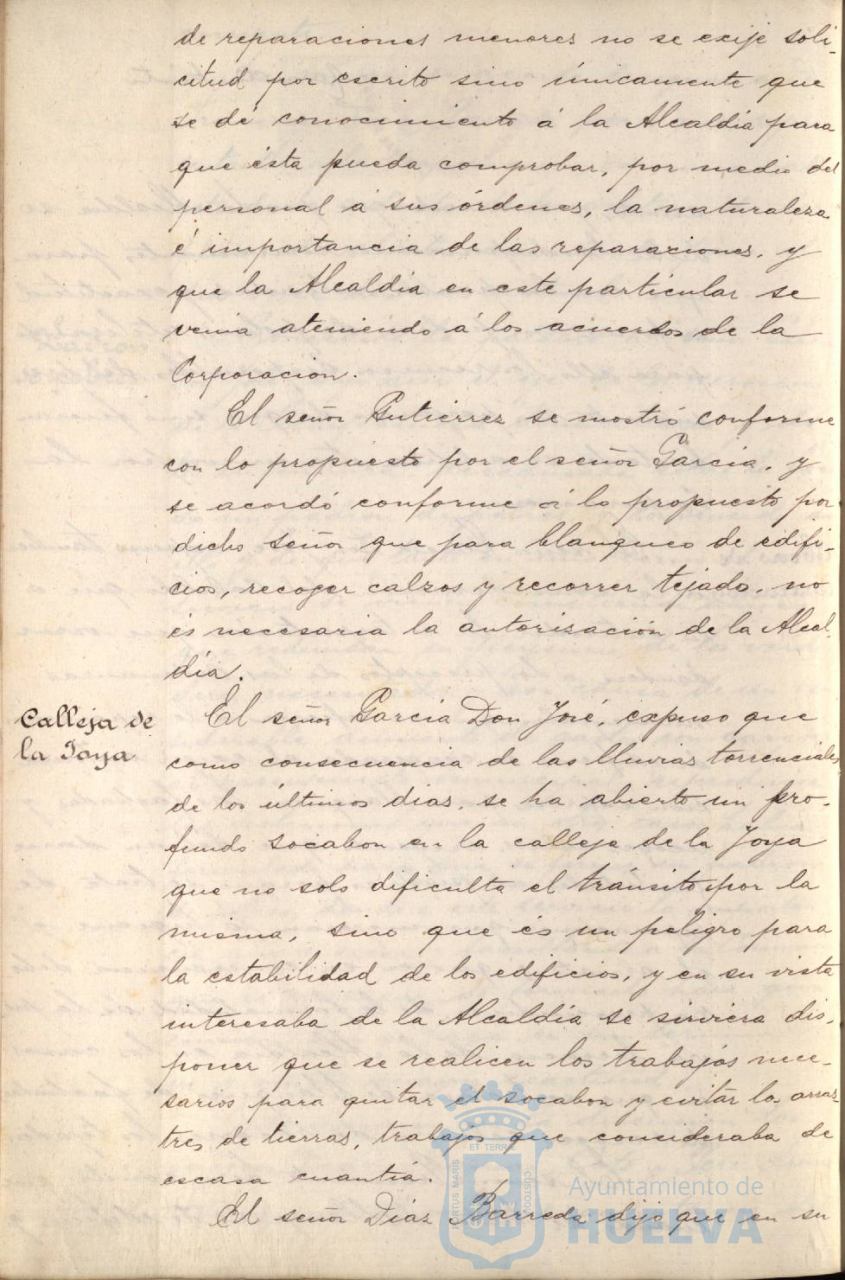 de reparaciones menores no se exije soli-
citud por escrito sino únicamente que
se dé conocimiento á la Alcaldía para
que ésta pueda comprobar, por medio del
personal á sus órdenes, la naturaleza
é importancia de las reparaciones, y
que la Alcaldía en este particular se
venía ateniendo á los acuerdos de la
Corporación.
El señor Gutiérrez se mostró conforme
con lo propuesto por el señor García, y
se acordó conforme á lo propuesto por
dicho señor que para blanqueo de edifi-
cios, recoger calzos y recorrer tejado, no
és necesaria la autorización de la Alcal-
día.
Calleja de
la Joya
El señor García Don José, expuso que
como consecuencia de las lluvias torrenciales
de los últimos dias, se ha abierto un pro-
fundo socabon en la calleja de la Joya
que no solo dificulta el tránsito por la
misma, sino que és un peligro para
la estabilidad de los edificios, y en su vista
interesaba de la Alcaldía se sirviera dis-
poner que se realicen los trabajos nece-
sarios para quitar el socabon y evitar la arras-
tres de tierras, trabajos que consideraba de
escasa cuantía.
El señor Díaz Barreda dijo que en su
PORTUS MARIS ET TERRAE CUSTODIA
Ayuntamiento de
HUELVA